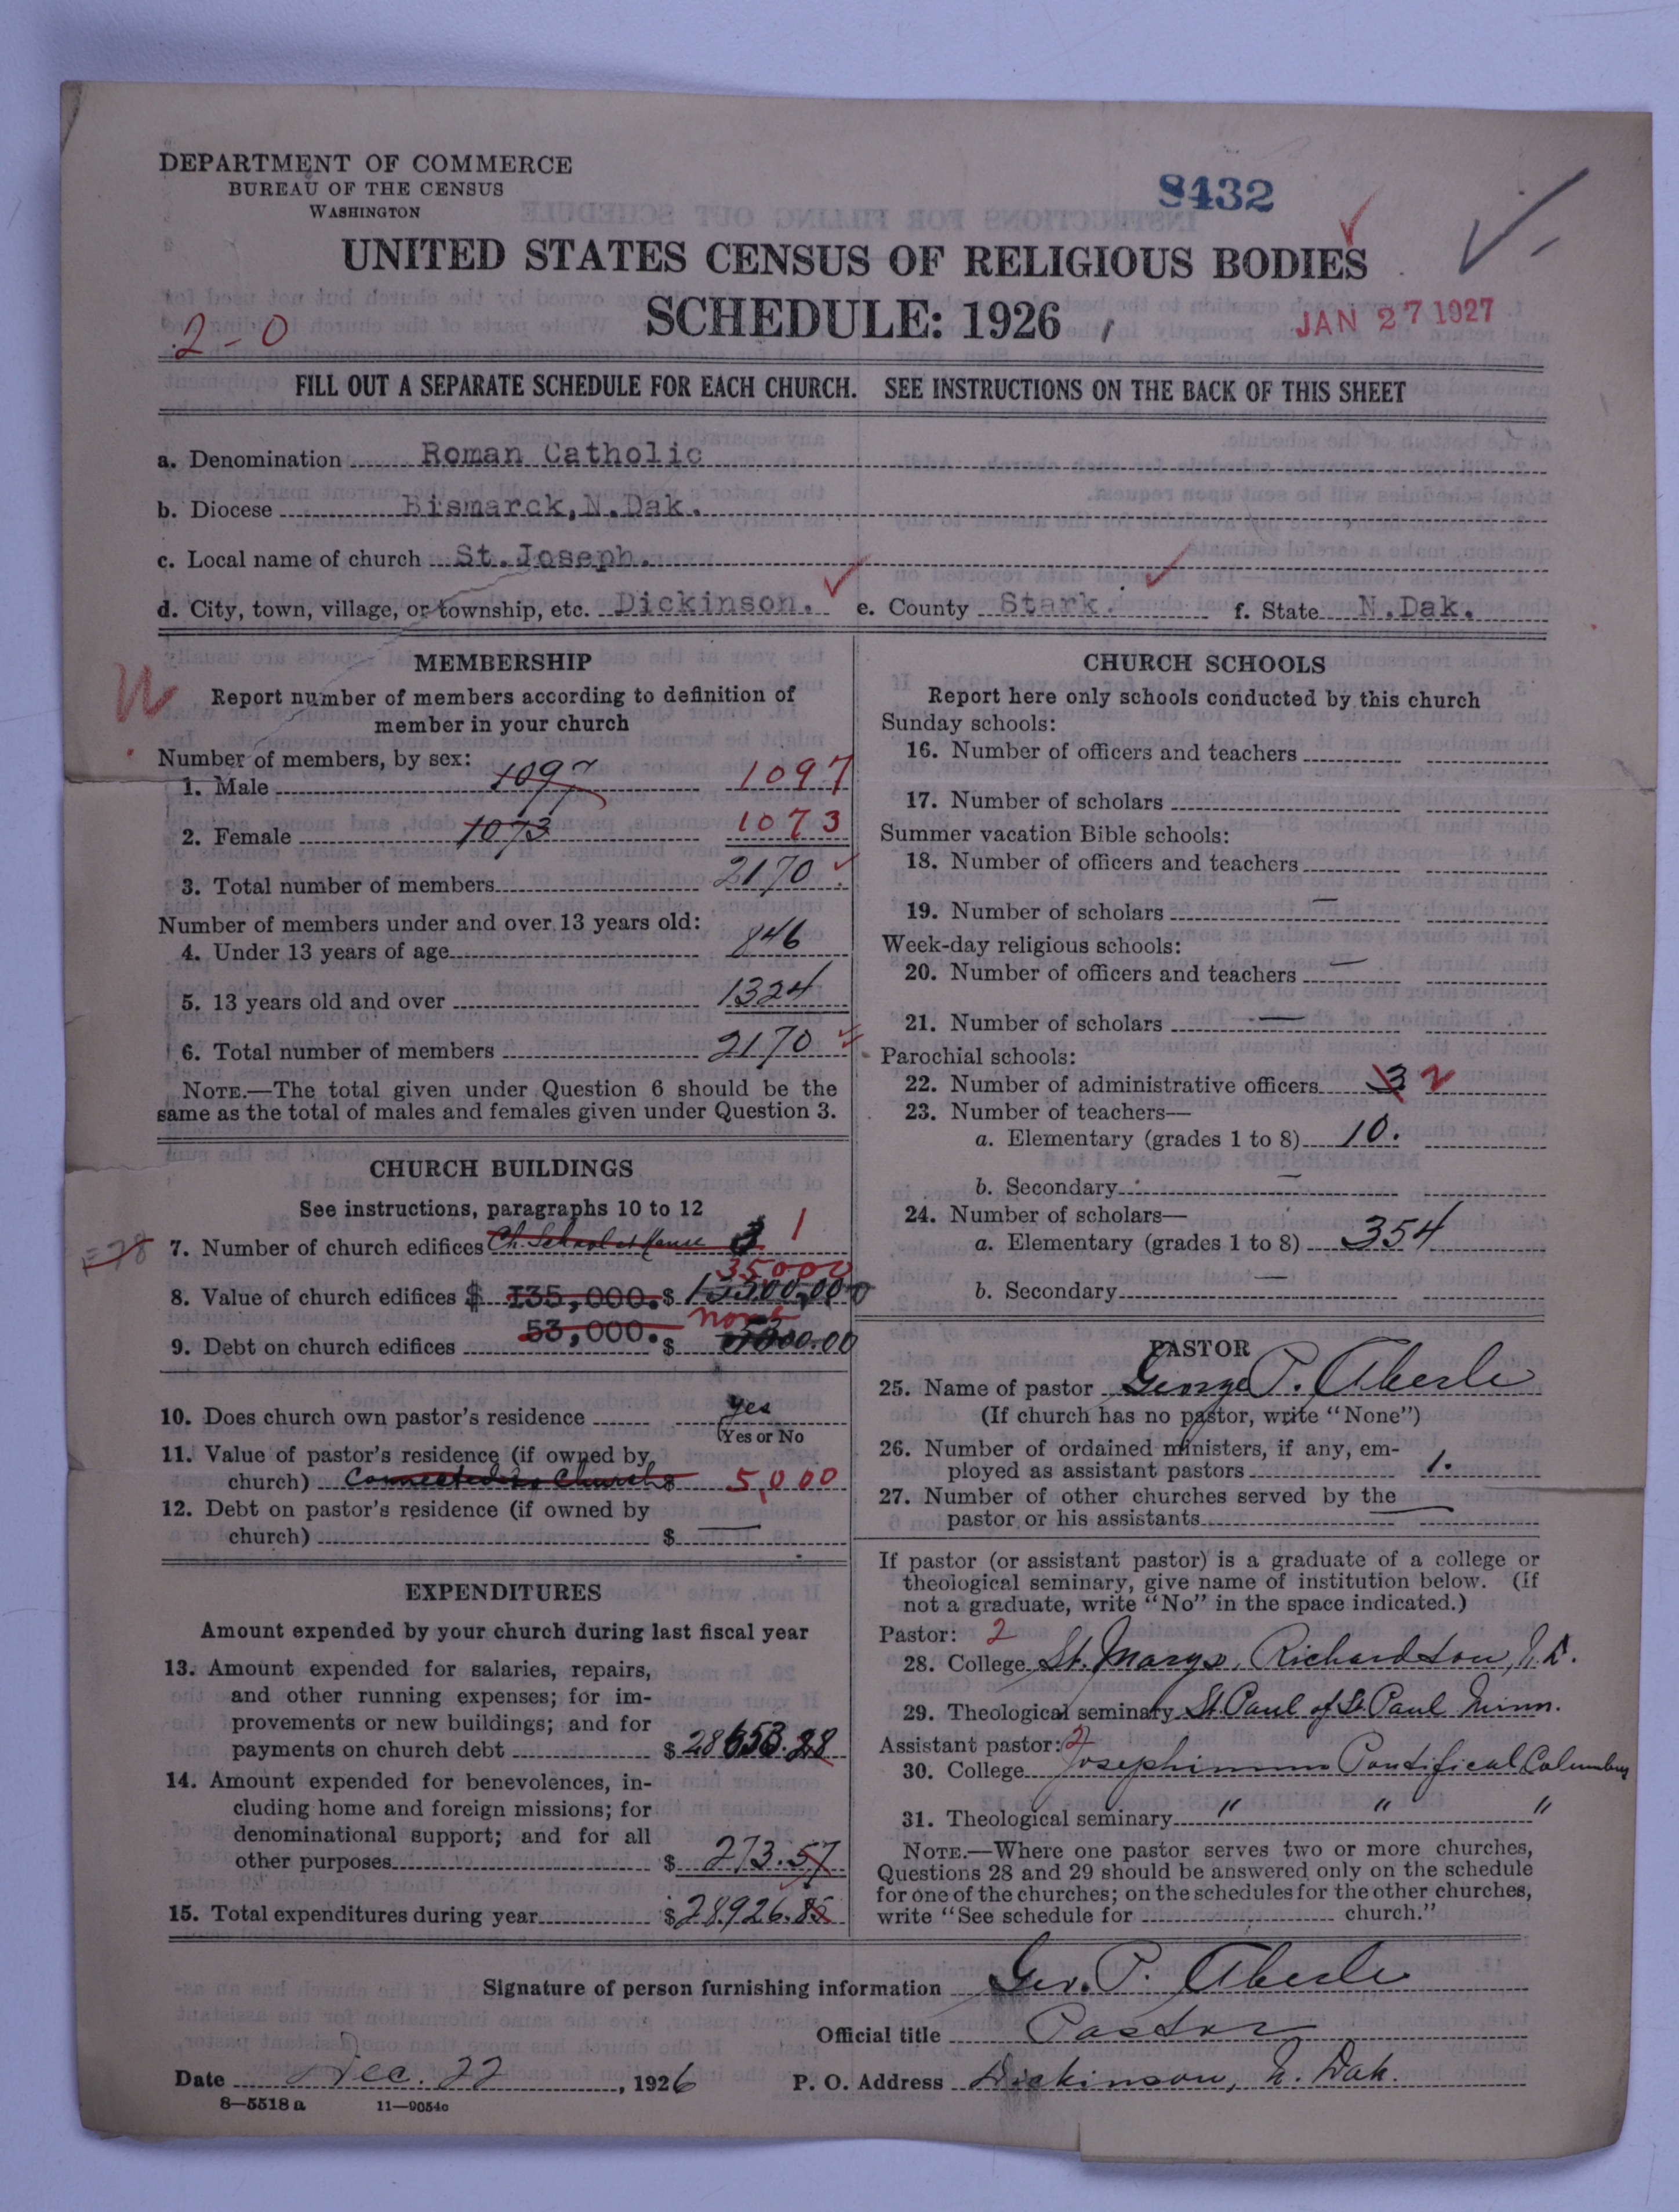 DEPARTMENT OF COMMERCE
BUREAU OF THE CENSUS
WASHINGTON
8432
UNITED STATES CENSUS OF RELIGIOUS BODIES
SCHEDULE: 1926
JAN 27 1927
2-0
FILL OUT A SEPARATE SCHEDULE FOR EACH CHURCH. SEE INSTRUCTIONS ON THE BACK OF THIS SHEET
a. Denomination Roman Catholic
b. Diocese Bismarck, N.Dak.
c. Local name of church St. Joseph.
d. City, town, village, or township, etc. Dickinson. e. County Stark. f. State N.Dak.
MEMBERSHIP
Report number of members according to definition of
member in your church
Number of members, by sex:
1. Male 1097 1097
2. Female 1073 1073
3. Total number of members 2170
Number of members under and over 13 years old:
4. Under 13 years of age 846
5. 13 years old and over 1324
6. Total number of members 2170
NOTE.—The total given under Question 6 should be the
same as the total of males and females given under Question 3.
CHURCH BUILDINGS
See instructions, paragraphs 10 to 12
7. Number of church edifices Ch. School & House 3 1
35000
8. Value of church edifices $ 135,000. $
53,000. none
9. Debt on church edifices $
10. Does church own pastor's residence yes
(Yes or No
11. Value of pastor's residence (if owned by
church) Connected to Church $ 5,000
12. Debt on pastor's residence (if owned by
church) $ —
EXPENDITURES
Amount expended by your church during last fiscal year
13. Amount expended for salaries, repairs,
and other running expenses; for im-
provements or new buildings; and for
payments on church debt $ 28653.28
14. Amount expended for benevolences, in-
cluding home and foreign missions; for
denominational support; and for all
other purposes $ 273.57
15. Total expenditures during year $ 28926.85
CHURCH SCHOOLS
Report here only schools conducted by this church
Sunday schools:
16. Number of officers and teachers
17. Number of scholars
Summer vacation Bible schools:
18. Number of officers and teachers
19. Number of scholars —
Week-day religious schools:
20. Number of officers and teachers —
21. Number of scholars —
Parochial schools:
22. Number of administrative officers 3 2
23. Number of teachers—
a. Elementary (grades 1 to 8) 10.
b. Secondary —
24. Number of scholars—
a. Elementary (grades 1 to 8) 354
b. Secondary —
PASTOR
25. Name of pastor George P. Aberle
(If church has no pastor, write "None")
26. Number of ordained ministers, if any, em-
ployed as assistant pastors 1.
27. Number of other churches served by the
pastor or his assistants —
If pastor (or assistant pastor) is a graduate of a college or
theological seminary, give name of institution below. (If
not a graduate, write "No" in the space indicated.)
Pastor: 2
28. College St. Marys, Richardton, N.D.
29. Theological seminary St. Paul of St. Paul Minn.
Assistant pastor: 2
30. College Josephinum Pontifical Columbus
31. Theological seminary " " "
NOTE.—Where one pastor serves two or more churches,
Questions 28 and 29 should be answered only on the schedule
for one of the churches; on the schedules for the other churches,
write "See schedule for church."
Signature of person furnishing information Geo. P. Aberle
Official title Pastor
Date Dec. 22, 1926 P. O. Address Dickinson, N. Dak.
8—5518a 11—9054c